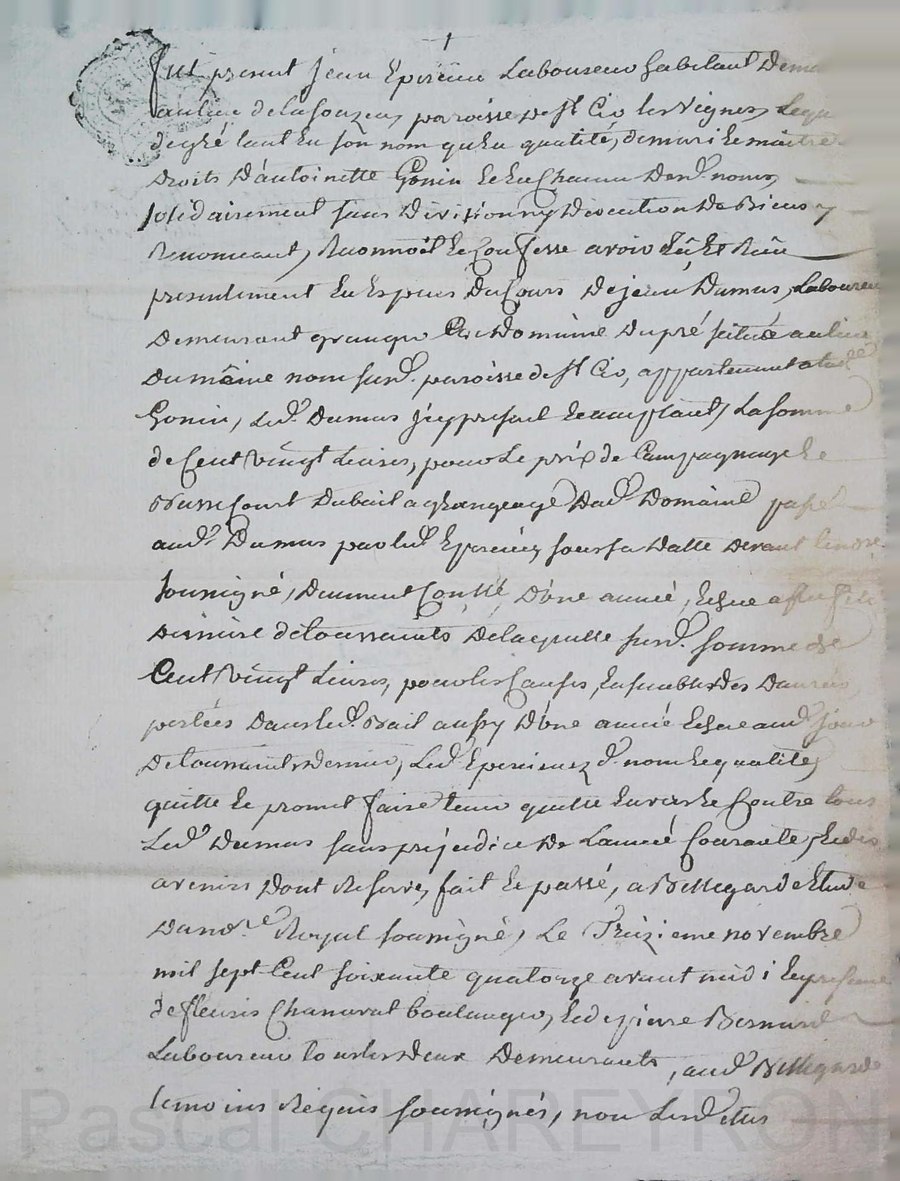 fut present jean Epercieu Laboureur habitant Demeu
au lieu de la fouzea, paroisse de st Cir les vignes, Lequ
de gré tant En son nom qu'en qualité, de mari et maitre
Droits D'antoinette Gonin Et En Chacun Desd. noms,
solidairement sans Division ny Discution De Biens y
Renonceant, Reconnoit et Confesse avoir Eû Et Reçu
presentement En Especes Du Cours De jean Dumas, Laboureur
Demeurant granger Domaine Du pré scitué au lieu
Du même nom susd. paroisse de st Cir, appartenant a
Gonin, Led. Dumas icy present acceptant, La somme
de Cent vingt Livres, pour Le prix de
Du bail a grangeage Dud. Domaine passé
aud. Dumas par led. Epercieu, sous sa Datte Devant le
soussigné, D'une année, Echue
Derniere de toussaints De laquelle susd. somme de
Cent vingt Livres, pour les Causes, Ensembles des Danrées,
portées Dans led. Bail aussy D'une année Echue aud. jour
De toussaints Dernier, Led. Epercieu Ez d. nom Et qualité,
quitte Et promet faire tenir quitte Envers Et Contre tous
Led. Dumas sans préjudice De L'année Courante, Et des
avenirs Dont Reserve, fait Et passé, a Bellegarde Etude
Dud. no.re Royal soussigné, Le Treizieme novembre
mil sept Cent soixante quatorze avant midi En presence
de fleuris Chanavat boulanger, Et de pierre Bernard
Laboureur tous les deux Demeurants, aud. Bellegarde
temoins Requis soussignés, non Led.
Pascal CHAREYRON